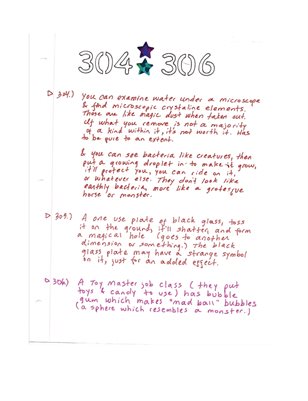 304 306
304.) You can examine water under a microscope
& find microscopic crystaline elements.
These are like magic dust when taken out.
If what you remove is not a majority
of a kind within it, it's not worth it. Has
to be pure to an extent.
& you can see bacteria like creatures, then
put a growing droplet in to make it grow,
it'll protect you, you can ride on it,
or whatever else. They don't look like
earthly bacteria, more like a grotesque
horse or monster.
305.) A one use plate of black glass, toss
it on the ground, it'll shatter, and form
a magical hole (goes to another
dimension or something.) The black
glass plate may have a strange symbol
on it, just for an added effect.
306) A Toy Master job class (they put
toys & candy to use) has bubble
gum which makes "mad ball" bubbles
(a sphere which resembles a monster.)